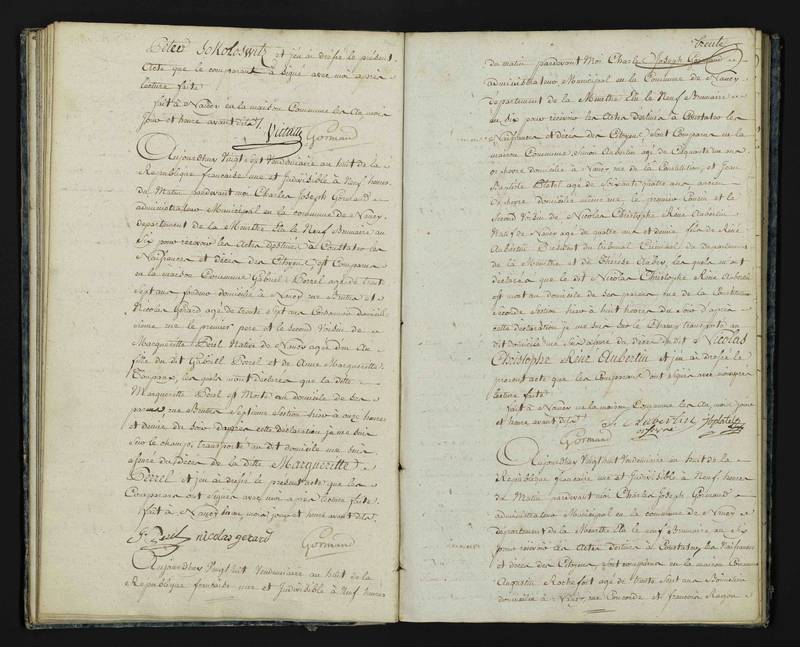 Péter Sokoloswitz et j'en ai dréssé le présent
Acte que le comparant à Signé avec moi après
lecture faite
fait à Nancy en la maison Commune les An, mois
Jour et heure avant dits
Gormand
Aujourdhuy Vingt Sept Vendemiaire an huit de la
République francaise une et Indivisible à Neuf heures
du Matin pardevant moi Charles Joseph Gormand
administrateur Municipal en la commune de Nancy
departement de la Meurthe Elu le Neuf Brumaire an
Six pour recevoir les Actes destinés à Constater les
Naissances et décès des Citoyens, est Comparu
en la maison Commune Gabriel Perrel agé de trente
Sept ans domicilié à Nancy rue et
Nicolas Gérard agé de trente Sept ans Cordonnier domicilié
même rue le premier pere et le second Voisin de
Margueritte Perel Native de Nancy agée d'un An
fille du dit Gabriel Perel et de Anne Marguerritte
les quels m'ont déclarés que la ditte
Marguerritte Perel est Morte au domicile de ses
peres, rue Septieme Section hier à onze heures
et demie du Soir D'après cette déclaration je me Suis
Sur le Champ transporté au dit domicile me Suis
assuré du Décès de la ditte Marguerritte
Perrel et j'en ai dréssé le présent acte que les
Comparans ont signés avec moi après lecture faite
fait à Nancy les an, mois jour et heure avant dits
nicolas gerard Gormand
Aujourdhuy Vingt huit Vendemiaire an huit de la
République francaise une et Indivisible à Neuf heures
trente
du matin pardevant Moi Charles Joseph Gormand
administrateur Municipal en la Commune de Nancy
département de la Meurthe Elu le Neuf Brumaire
an Six pour recevoir les Actes destinés à Constater les
Naissances et décès des Citoyens, sont Comparus en la
maison Commune, Simon Aubertin agé de Cinquante un ans
orfevre domicilié à Nancy rue de la Constitution, et Jean
Baptiste Platel agé de Soixante quatre ans ancien
orfevre domicilié même rue le premier Cousin et le
Second Voisin de Nicolas Christophe Réné Aubertin
Natif de Nancy agé de quatre ans et demie fils de Réné
Aubertin Président du tribunal Criminel du departement
de la Meurthe et de Thérèse Aubry, les quels m'ont
déclarés que le dit Nicolas Christophe Réné Aubertin
est mort au domicile de ses peres rue de la Constitution
seconde Section hier à huit heures du Soir d'après
cette déclaration je me suis Sur le Champ transporté au
dit domicile me Suis assuré du décès du dit Nicolas
Christophe Réné Aubertin et j'en ai dréssé le
présent acte que les Comparans ont signés avec moi après
lecture faite
fait à Nancy en la maison Commune les An, mois Jour
et heure avant dits S. Aubertin JBplatel
orfevre
Gormand
Aujourdhuy Vingt huit Vendemiaire an huit de la
République francaise une et Indivisible à Neuf heures
du Matin pardevant moi Charles Joseph Gormand
administrateur Municipal en la commune de Nancy
département de la Meurthe Elu le neuf Brumaire an Six
pour recevoir les Actes destinés à Constater les Naissances
et décès des Citoyens, sont comparus en la maison Commune
Augustin Rochefort agé de trente Sept ans
domicilié à Nancy, rue Concorde et francois Ragon